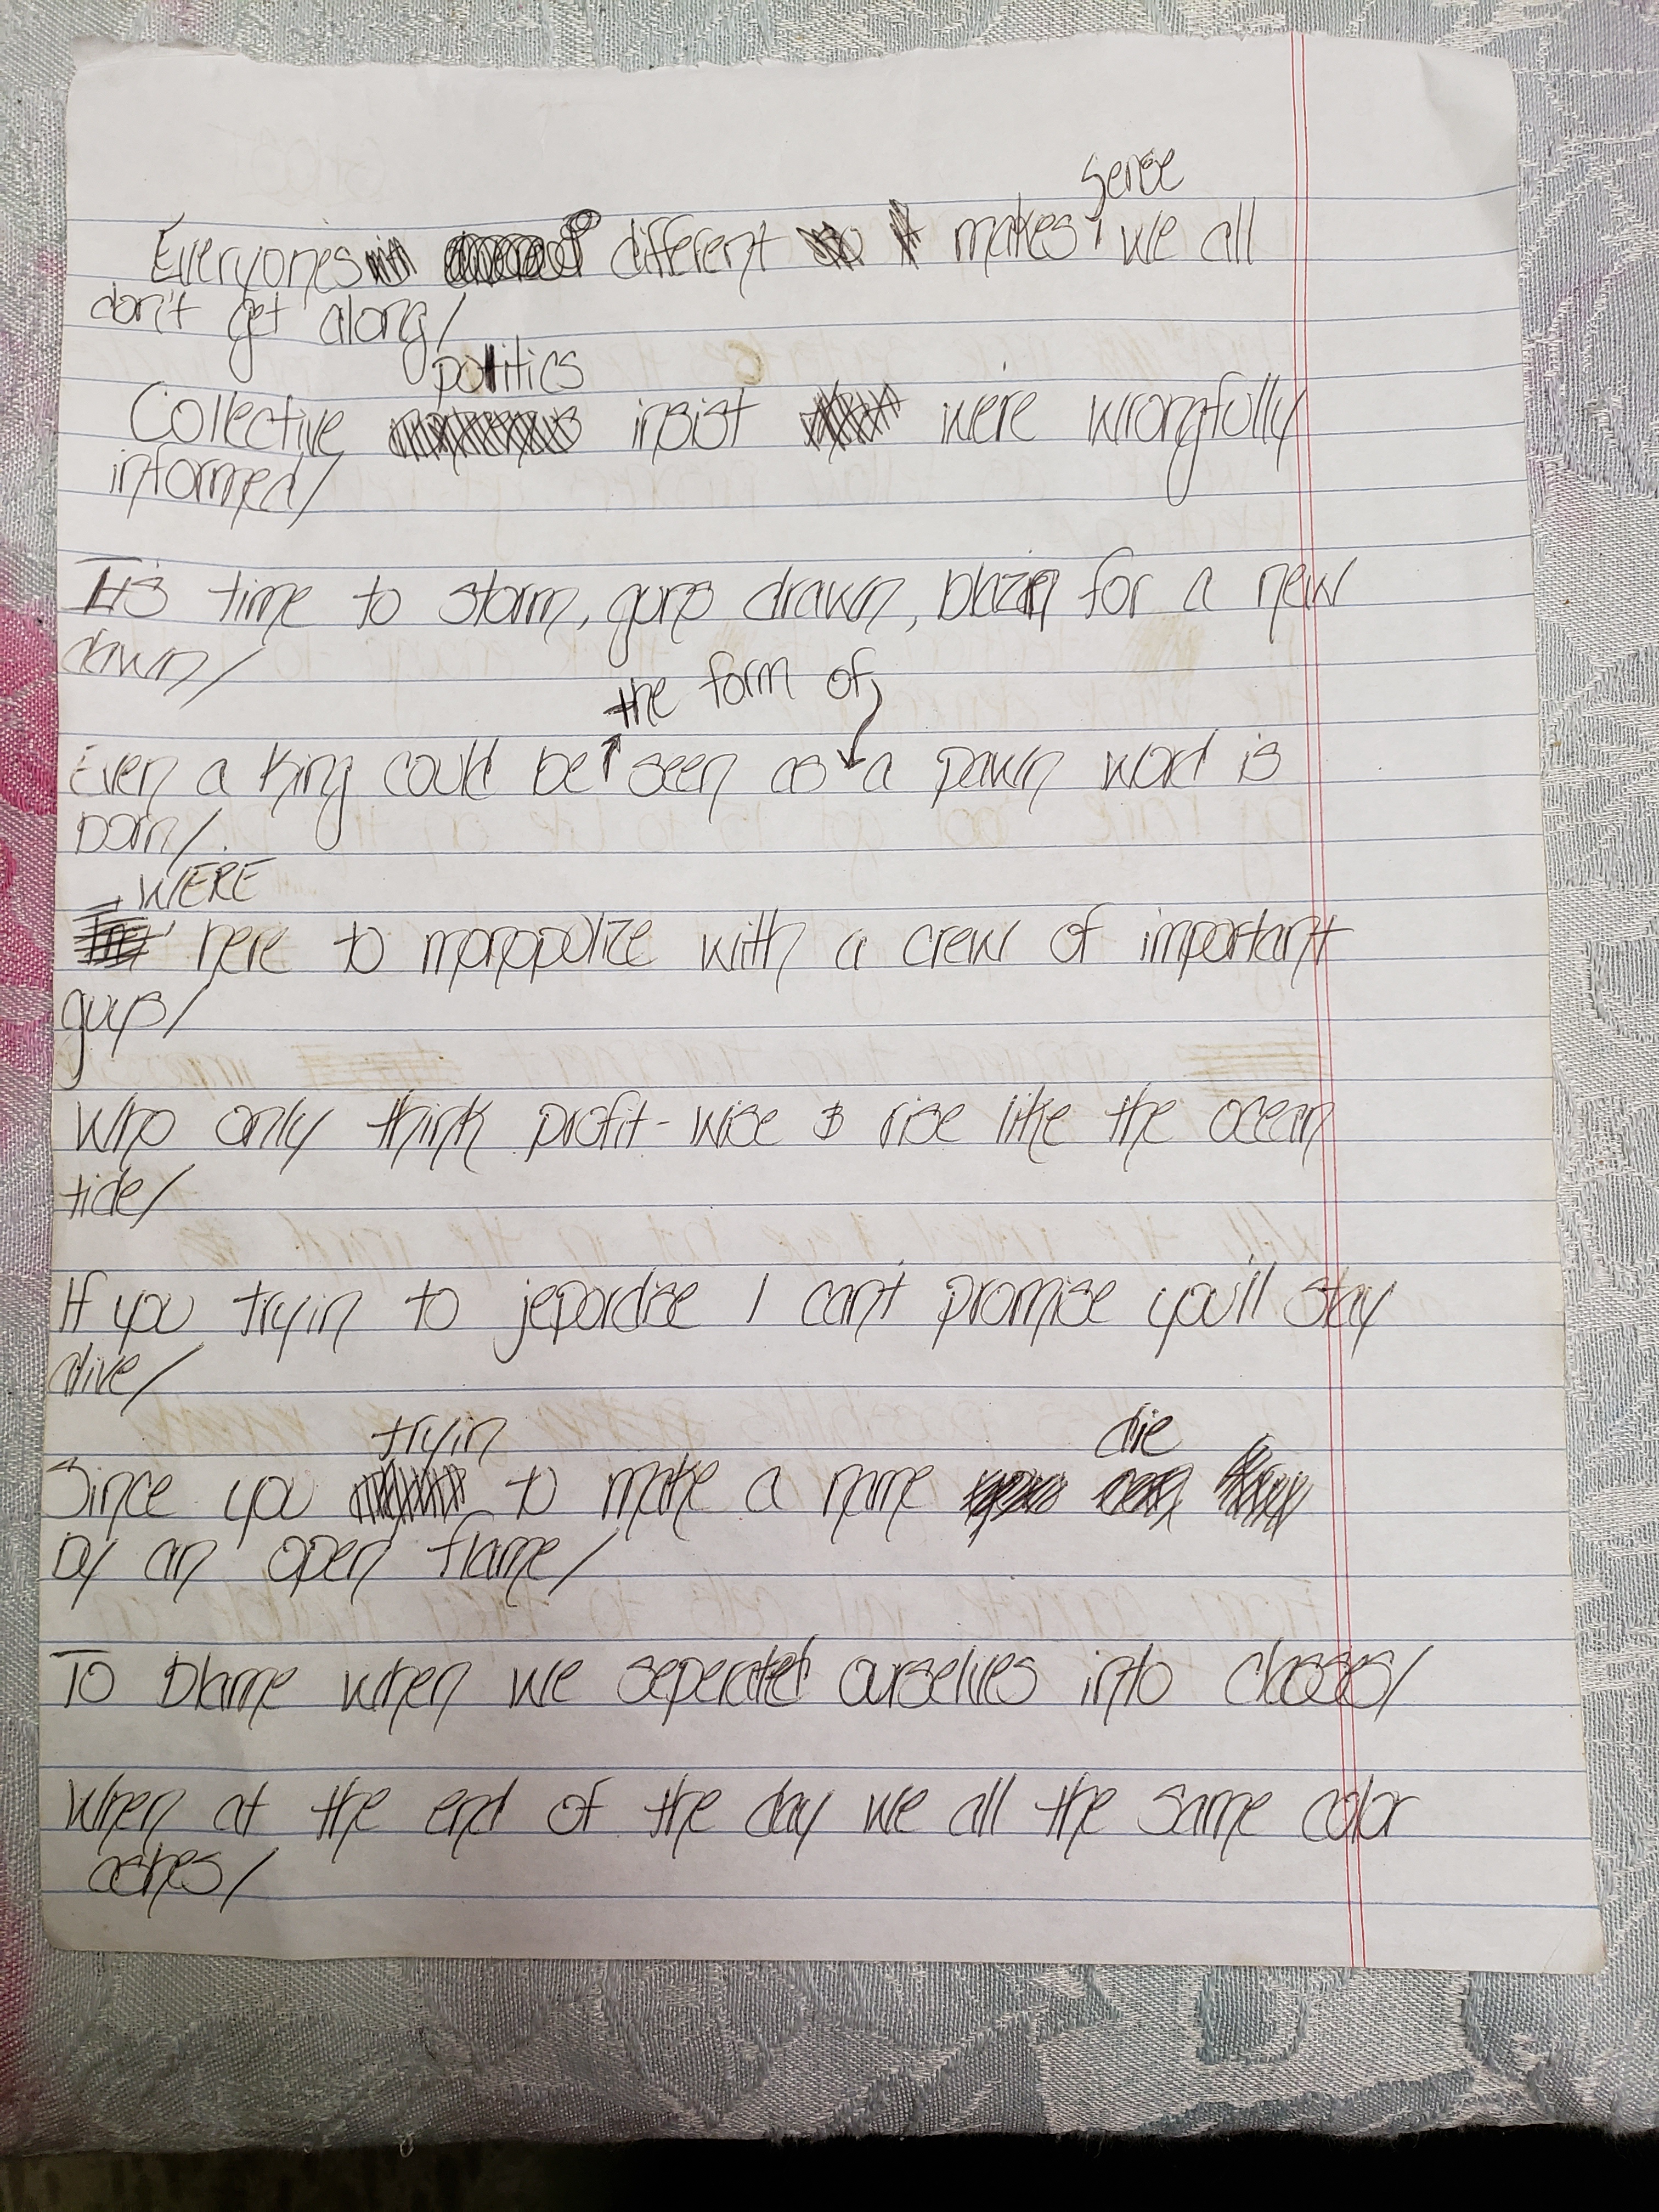 sense
Everyones different makes we all
don't get along/
politics
Collective insist were wrongfully
informed/
Its time to storm, guns drawn, blazin for a new
dawn/
the form of
Even a king could be seen as a pawn word is
born/
WERE
here to monopolize with a crew of important
guys/
Who only think profit-wise & rise like the ocean
tide/
If you tryin to jepordise I can't promise you'll stay
alive/
tryin die
Since you to make a name
by an open flame/
To blame when we seperated ourselves into classes/
When at the end of the day we all the same color
ashes/